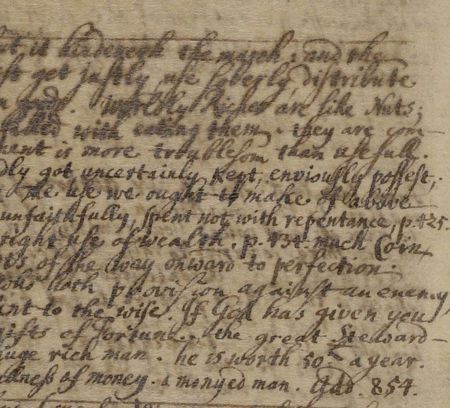 but it hindereth the march; and the
get justly use soberly, distribute
Worldly Riches are like Nuts;
with eating them. they are com-
it is more troublesom than usefull.
dly got uncertainly kept, enviously possest,
the use we ought to make of above
unfaithfully, spent not with repentance, p. 425.
right use of wealth. p. 434. much Corn
of the way onward to perfection
both provision against an enemy
to the wise. If God has given you
gifts of fortune. the great Steward-
huge rich man. he is worth a year.
of money. a monyed man. 854.